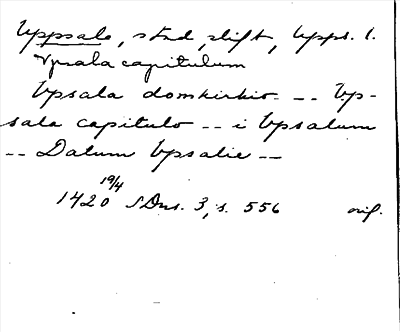 Uppsala, stad, stift, Upps. l.
Vpsala capitulum
Vpsala domkirkio -- Vp-
sala capitulo -- i Vpsalum
-- Datum Vpsalie --
1420 19/4 SDns. 3, s. 556 orig.